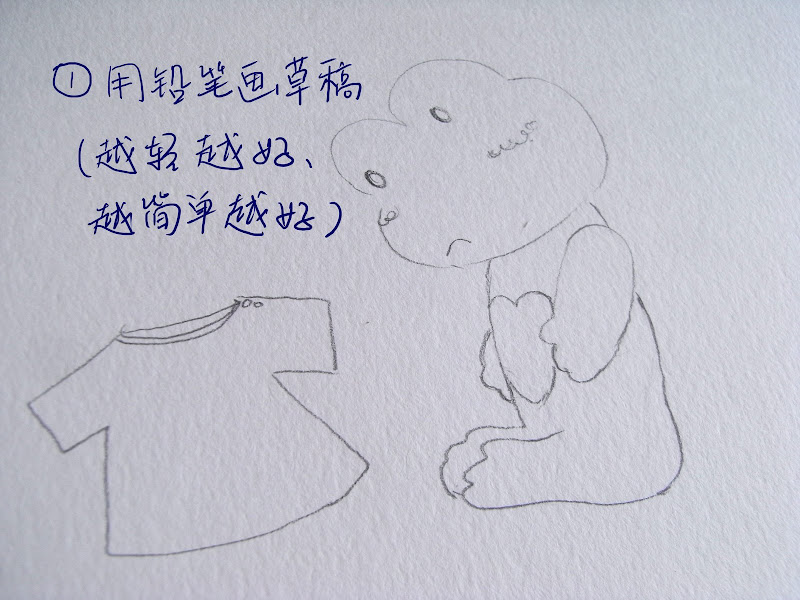 ① 用铅笔画草稿
(越轻越好、
越简单越好)